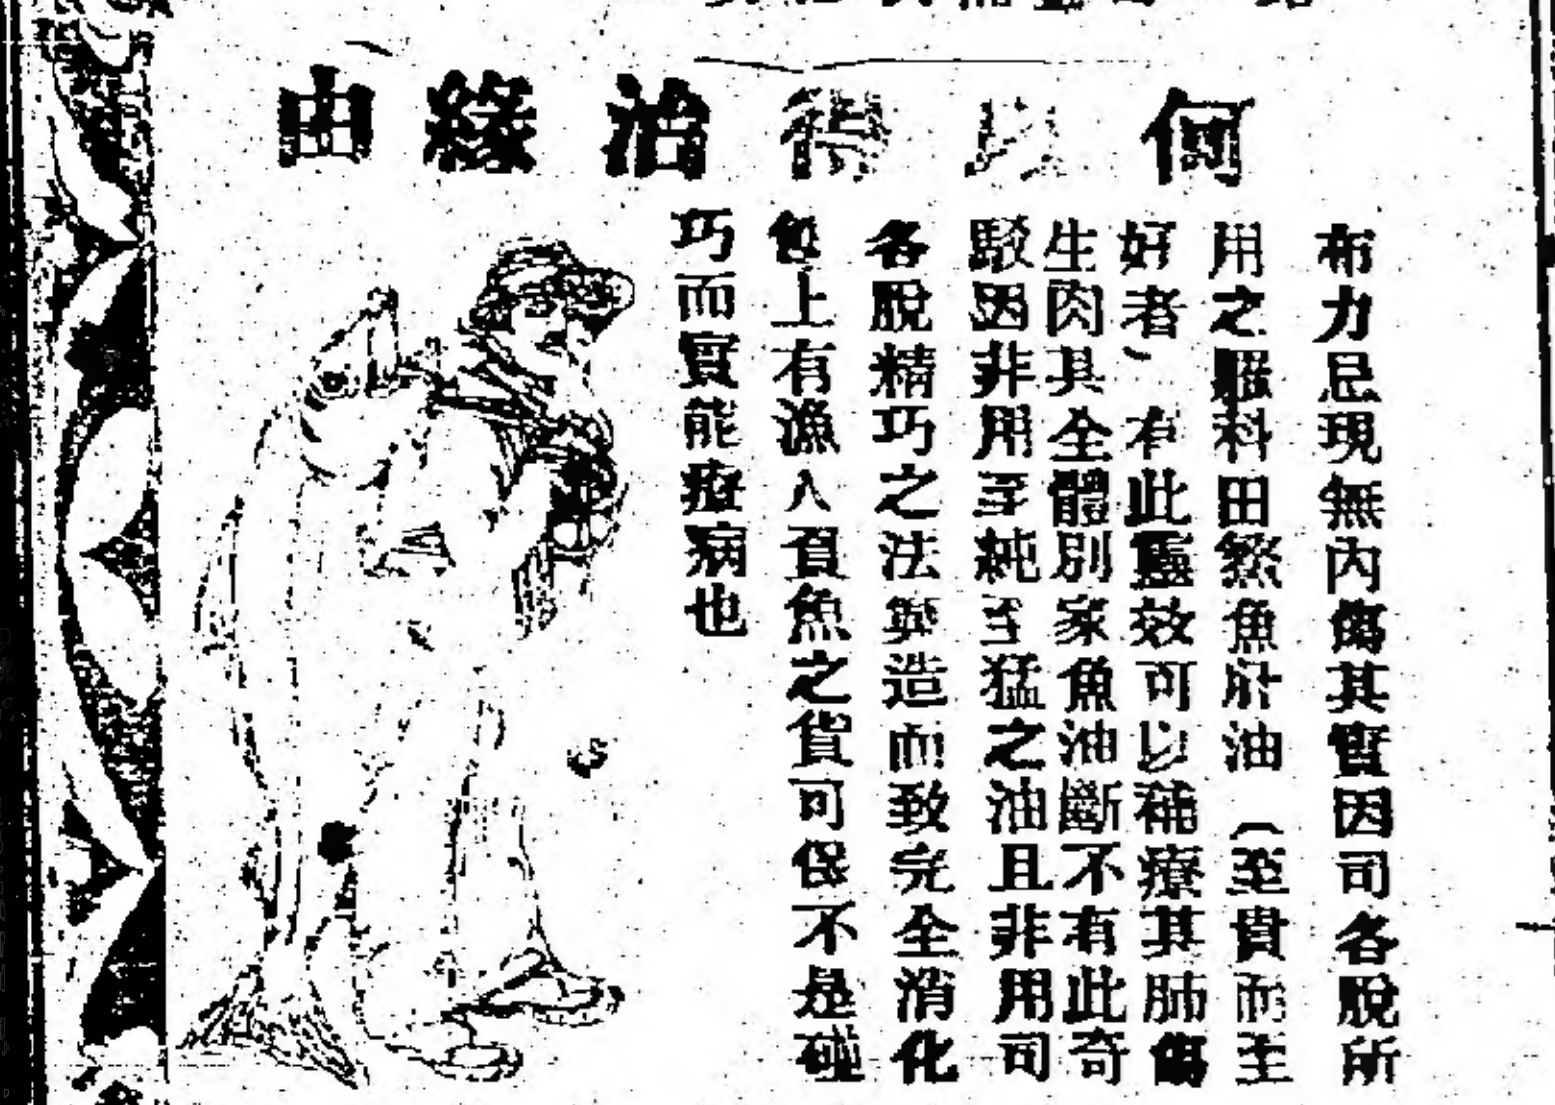 何以得治緣由
布力忌現無內傷其實因司各脫所
用之羅科田煞魚肝油（至貴而至
好者、有此靈效可以補療其肺傷
生肉其全體別家魚油斷不有此奇
駁因非用至純至猛之油且非用司
各脫精巧之法與造而致完全消化
包上有漁人負魚之貨可保不是碰
巧而實能療病也